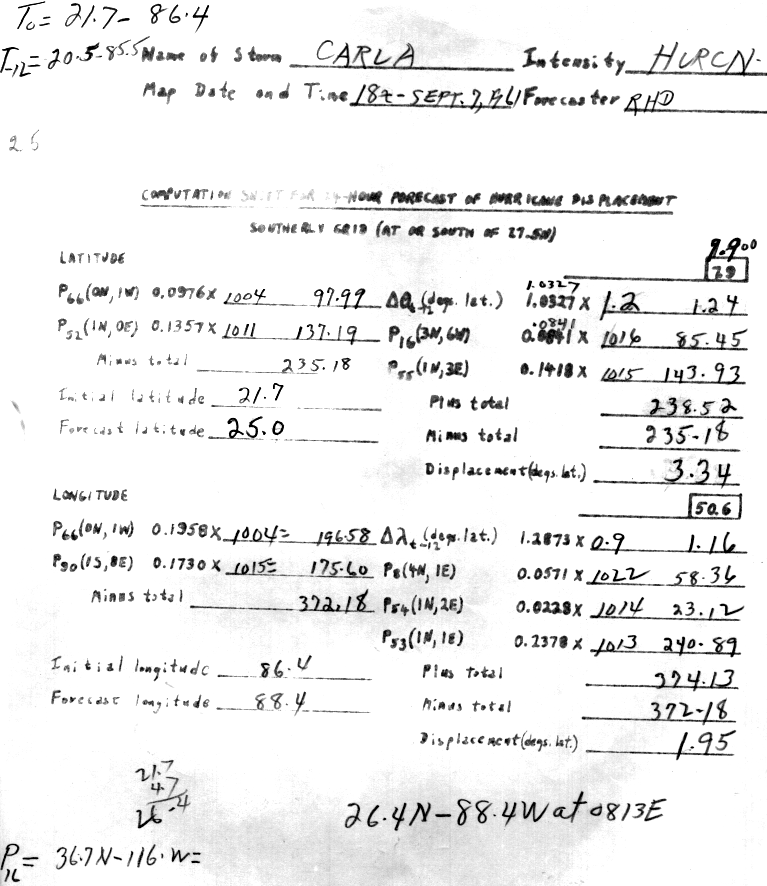 T₀= 21.7- 86.4
T₋₁₂=20.5-85.5 Name of Storm CARLA Intensity HURCN.
Map Date and Time 18z-SEPT. 7, 1961 Forecaster RHD
25
COMPUTATION SHEET FOR 24-HOUR FORECAST OF HURRICANE DISPLACEMENT
SOUTHERLY GRID (AT OR SOUTH OF 27.5N)
LATITUDE
9.900
7.9
1.0327
P₆₆(0N, 1W) 0.0976 x 1004 97.99 Δθt₋₁₂(degs. lat.) 1.0327 x 1.2 1.24
.0841
P₅₂(1N, 0E) 0.1357 x 1011 137.19 P₁₆(3N, 6W) 0.0841 x 1016 85.45
Minus total 235.18 P₅₅(1N, 3E) 0.1418 x 1015 143.93
Initial latitude 21.7 Plus total 238.52
Forecast latitude 25.0 Minus total 235-18
Displacement (degs. lat.) 3.34
LONGITUDE
50.6
P₆₆(0N, 1W) 0.1958 x 1004= 196.58 Δλt₋₁₂(degs. lat.) 1.2873 x 0.9 1.16
P₉₀(1S, 8E) 0.1730 x 1015= 175.60 P₈(4N, 1E) 0.0571 x 1022 58.36
Minus total 372.18 P₅₄(1N, 2E) 0.0228 x 1014 23.12
P₅₃(1N, 1E) 0.2378 x 1013 240.89
Initial longitude 86.4 Plus total 374.13
Forecast longitude 88.4 Minus total 372-18
Displacement (degs. lat.) 1.95
21.7
4.7
26.4
26.4N-88.4W at 0813E
P₁₆= 36.7N-116.W=